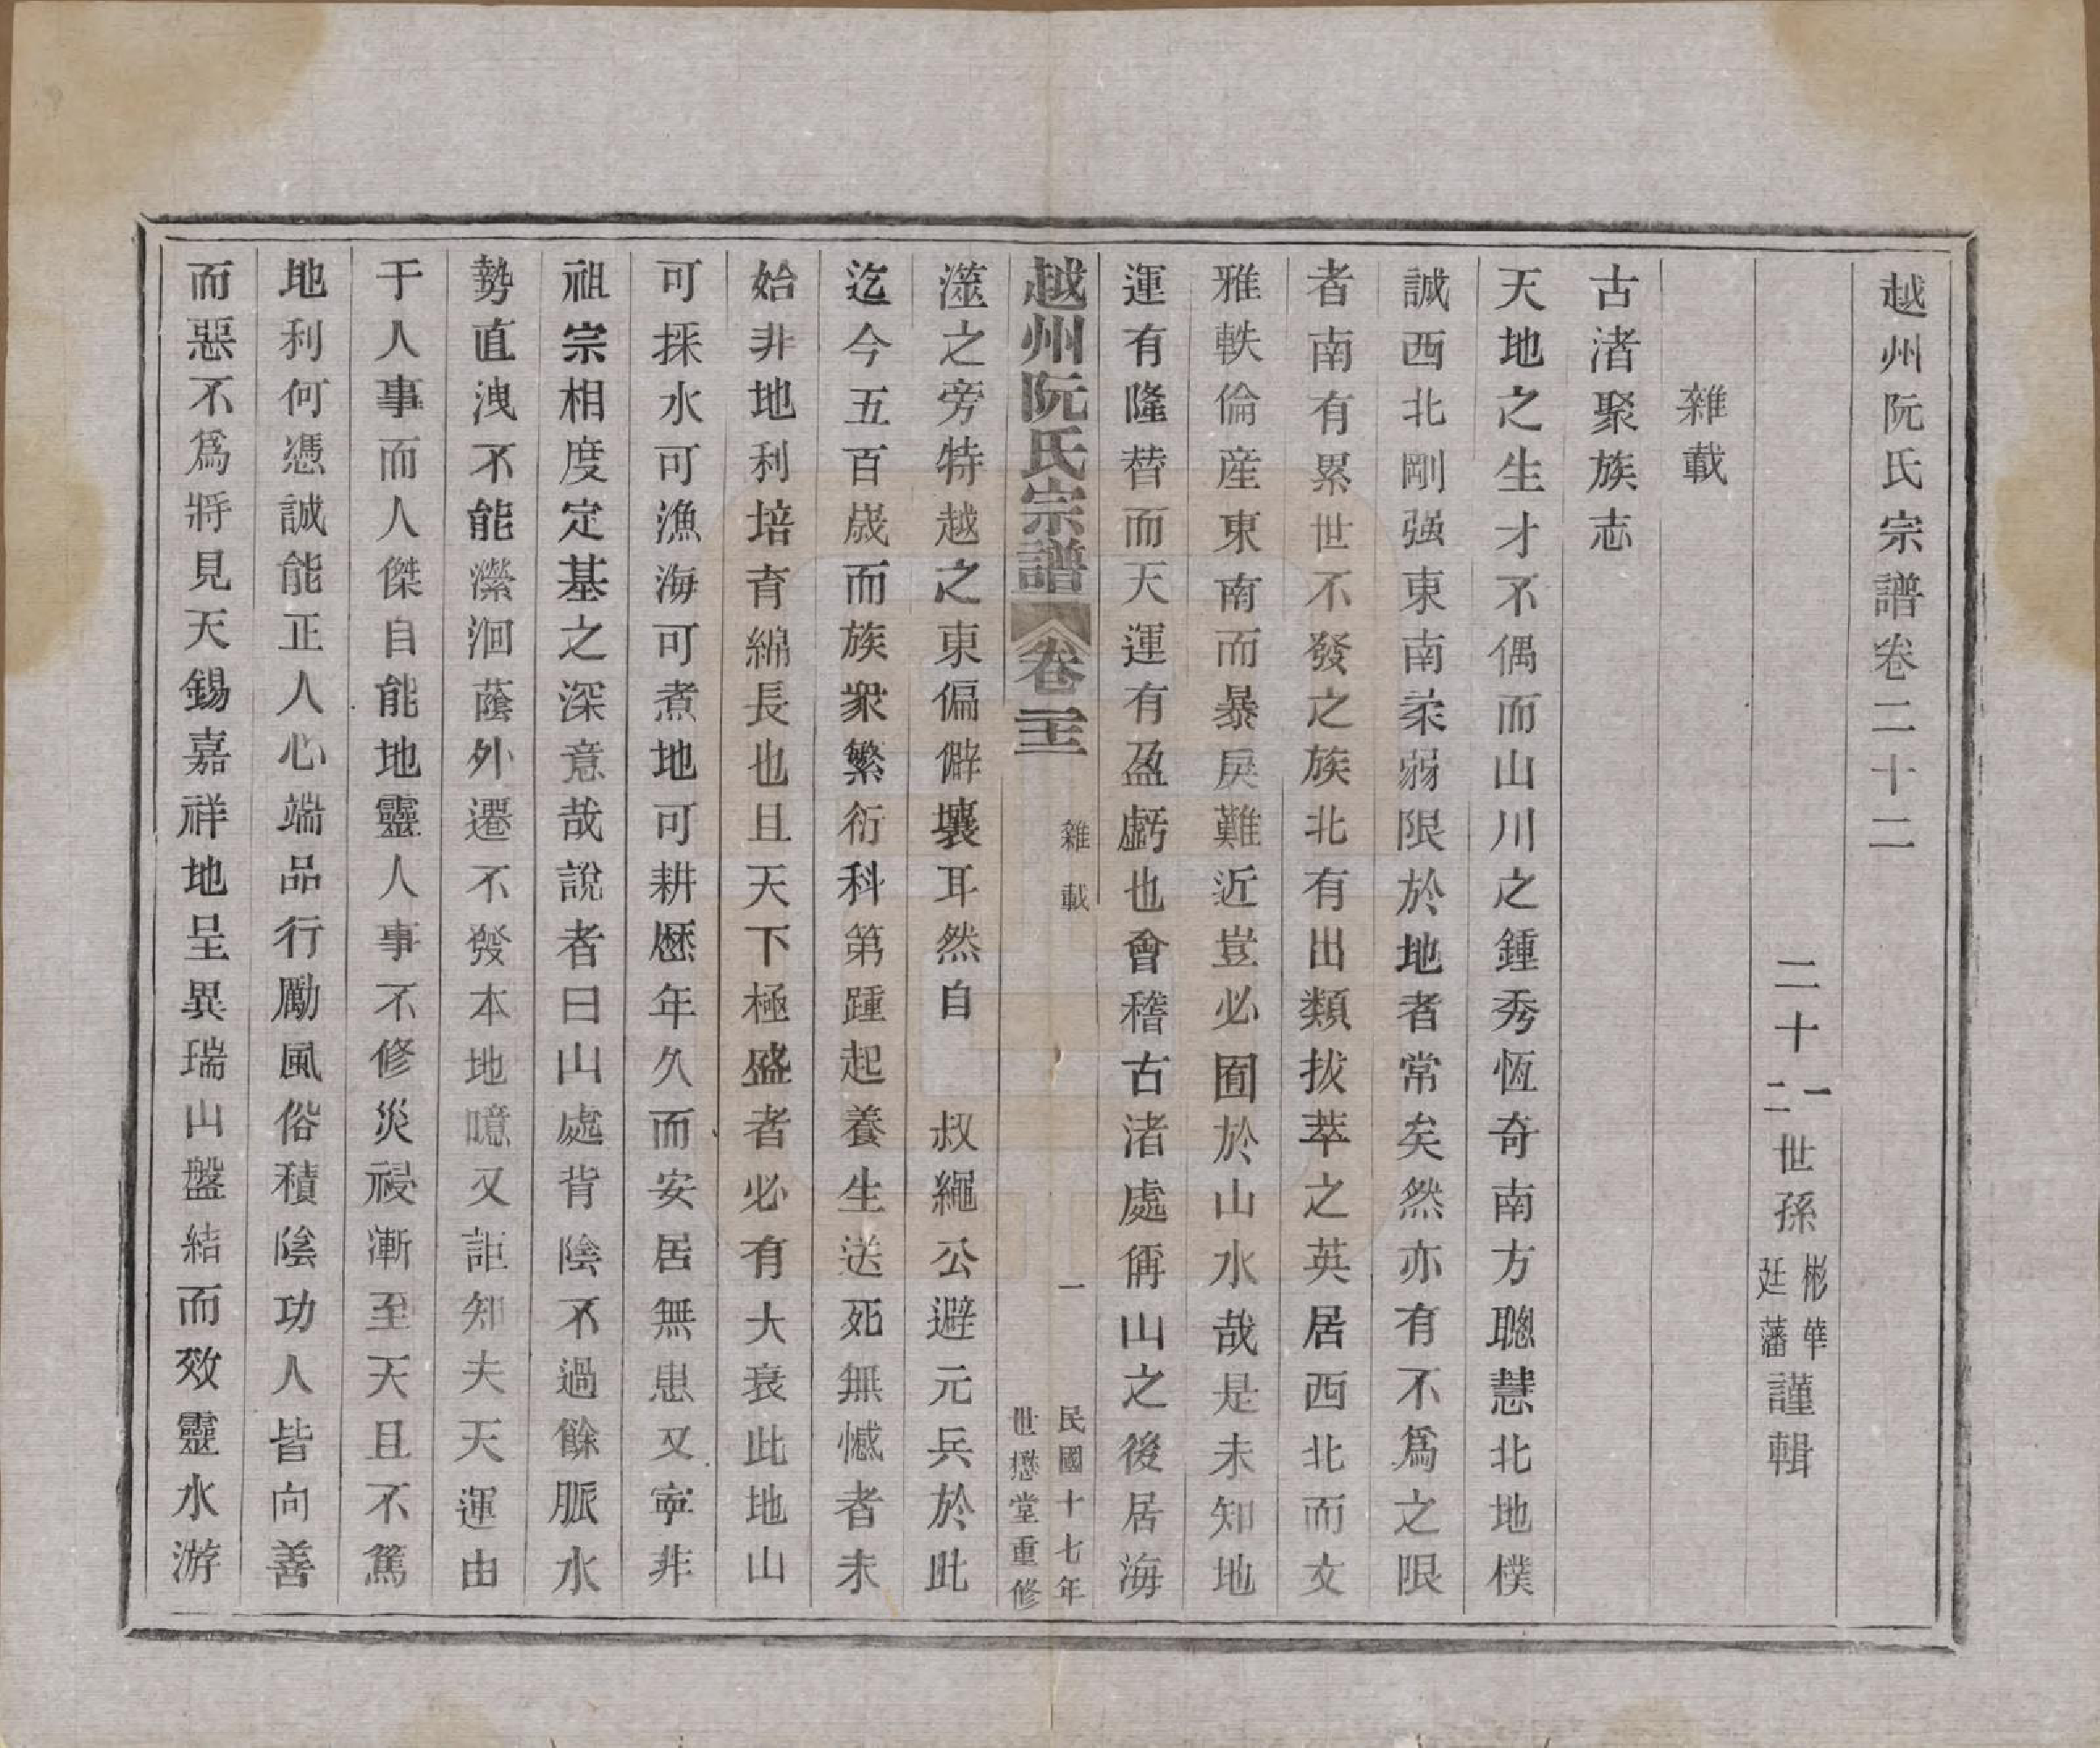 越州阮氏宗譜卷二十二
二十一二世孫彬華廷藩謹輯
雜載
古渚聚族志
天地之生才不偶而山川之鍾秀恆奇南方聰慧北地樸
誠西北剛强東南柔弱限於地者常矣然亦有不爲之限
者南有累世不發之族北有出類拔萃之英居西北而文
雅軼倫産東南而暴戾難近豈必囿於山水哉是未知地
運有隆替而天運有盈虧也會稽古渚處偁山之後居海
越州阮氏宗譜 卷二十二 雜載 一 民國十七年 世懋堂重修
澨之旁特越之東偏僻壤耳然自 叔繩公避元兵於此
迄今五百歲而族衆繁衍科第踵起養生送死無憾者未
始非地利培育綿長也且天下極盛者必有大衰此地山
可採水可漁海可煮地可耕歷年久而安居無患又寧非
祖宗相度定基之深意哉說者曰山處背陰不過餘脈水
勢直洩不能瀠洄蔭外遷不發本地噫又詎知夫天運由
于人事而人傑自能地靈人事不修災祲漸至天且不篤
地利何憑誠能正人心端品行勵風俗積陰功人皆向善
而惡不爲將見天錫嘉祥地呈異瑞山盤結而效靈水游